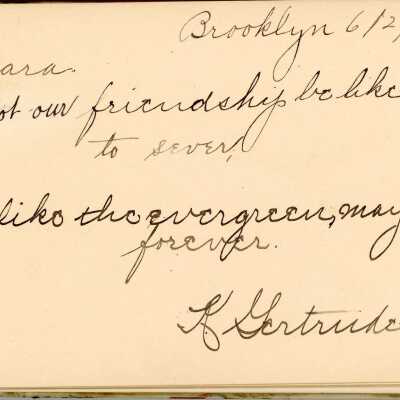 Brooklyn 6/2
ara.
ot our friendship be like
to sever,
like the evergreen, may
forever.
K Gertrude